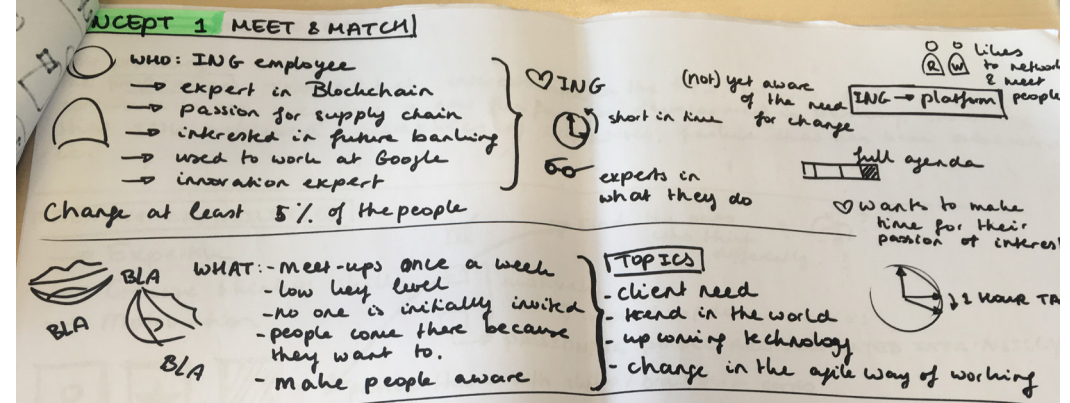 NCEPT 1 MEET & MATCH
WHO: ING employee
→ expert in Blockchain
→ passion for supply chain
→ interested in future banking
→ used to work at Google
→ innovation expert
Change at least 5% of the people
♡ ING
short in time
experts in
what they do
(not) yet aware
of the need
for change
R W
likes
to network
& meet
people
ING → platform
full agenda
♡ wants to make
time for their
passion of interes
BLA
BLA
BLA
WHAT: - meet-ups once a week
- low key level
- no one is initially invited
- people come there because
they want to.
- make people aware
TOPICS
- client need
- trend in the world
- upcoming technology
- change in the agile way of working
HOUR TA